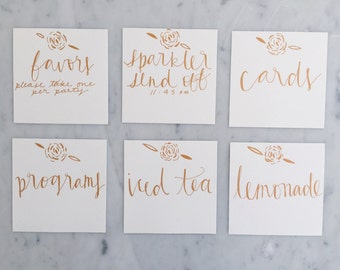 favors
please take one
per party.
sparkler
send off
cards
programs
iced tea
lemonade